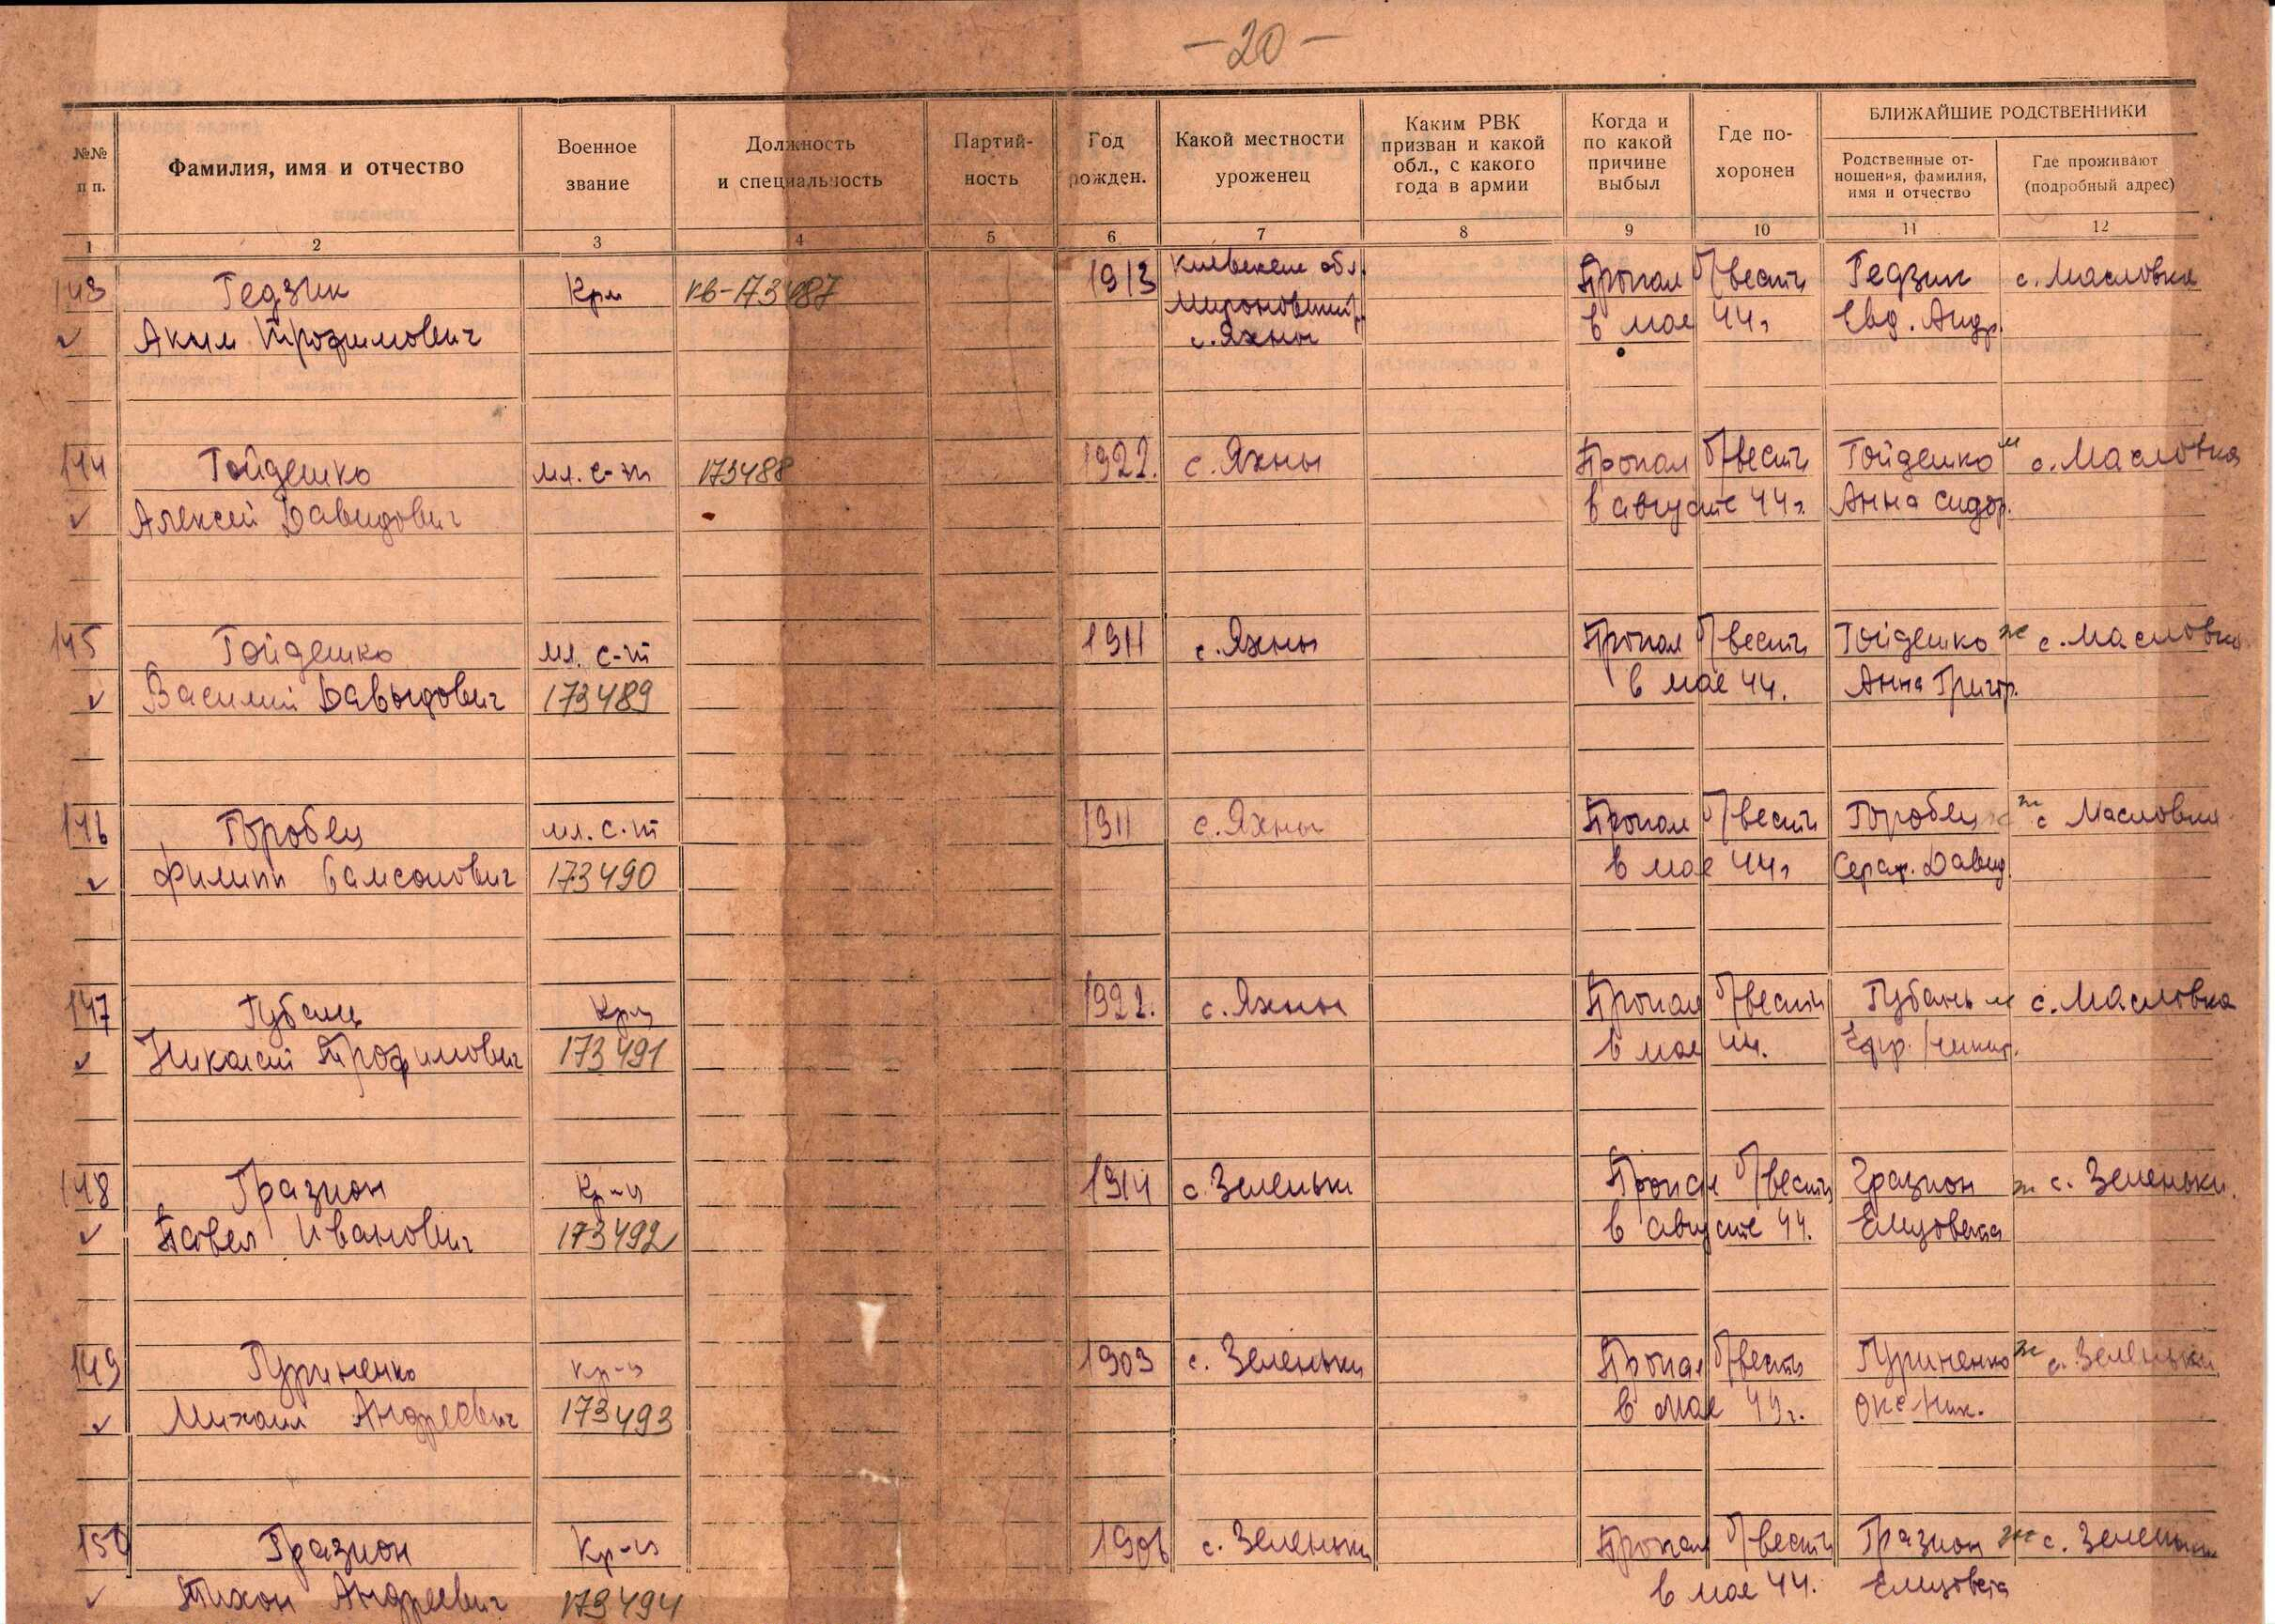 -20-
БЛИЖАЙШИЕ РОДСТВЕННИКИ
№№ п п. Фамилия, имя и отчество Военное звание Должность и специальность Партийность Год рожден. Какой местности уроженец Каким РВК призван и какой обл., с какого года в армии Когда и по какой причине выбыл Где похоронен Родственные отношения, фамилия, имя и отчество Где проживают (подробный адрес)
1 2 3 4 5 6 7 8 9 10 11 12
143 Гедзик Кр-ц кв-173487 1913 Киевская обл. Пропал б/вести Гедзик с. Масловка
Аким Трофимович Мироновский р. в мае 44г Евд. Андр.
с. Яхны
144 Гойденко мл. с-т 173488 1922. с. Яхны Пропал б/вести Гойденко м с. Масловка
Алексей Давидович в августе 44г. Анна Сидор.
145 Гойденко мл. с-т 1911 с. Яхны Пропал б/вести Гойденко ж с. Масловка
Василий Давыдович 173489 в мае 44. Анна Григор.
146 Горобец мл. с-т 1911 с. Яхны Пропал б/вести Горобец ж с Масловка
Филипп Самсонович 173490 в мае 44г Сераф. Давид.
147 Губань Кр-ц 1922. с. Яхны Пропал б/вести Губань м с. Масловка
Николай Трофимович 173491 в мае 44.
148 Гразион Кр-ц 1914 с. Зеленьки Пропал б/вести Гразион ж с. Зеленьки.
Павел Иванович 173492 в августе 44. Елизовета
149 Гуриненко Кр-ц 1903 с. Зеленьки Пропал б/вести Гуриненко ж с. Зеленьки
Михаил Андреевич 173493 в мае 44г. Окс Ник.
150 Гразион Кр-ц 1906 с. Зеленьки Пропал б/вести Гразион ж с. Зеленьки
Тихон Андреевич 173494 в мае 44. Елизовета